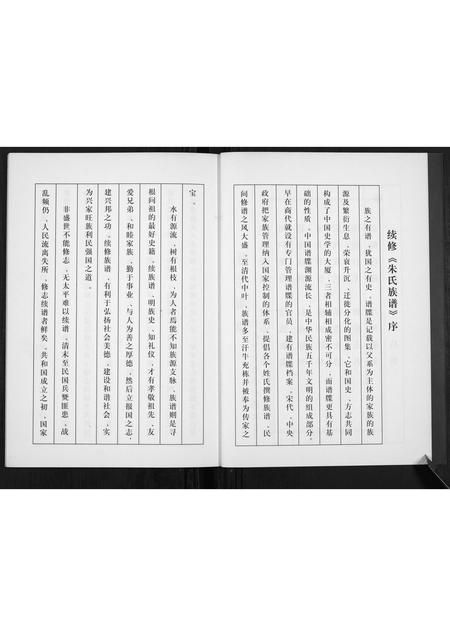 续修《朱氏族谱》序
族之有谱，犹国之有史。谱牒是记载以父系为主体的家族的族
源及繁衍生息、荣衰升沉、迁徙分化的图集，它和国史、方志共同
构成了中国史学的大厦，三者相辅相成密不可分，而谱牒更具有基
础的性质。中国谱牒渊源流长，是中华民族五千年文明的组成部分。
早在商代就设有专门管理谱牒的官员，建有谱牒档案。宋代，中央
政府把家族管理纳入国家控制的体系，提倡各个姓氏撰修族谱，民
间修谱之风大盛。至清代中叶，族谱多至汗牛充栋并被奉为传家之
宝。
水有源流，树有根枝，为人者焉能不知族源支脉，族谱则是寻
根问祖的最好史籍。续族谱、明族史、知礼仪，才有孝敬祖先、友
爱兄弟、和睦家族、勤于事业、与人为善之厚德，然后立报国之志，
建兴邦之功。续修族谱，有利于弘扬社会美德，建设和谐社会，实
为兴家旺族利民强国之道。
非盛世不能修志，无太平难以续谱。清末至民国兵燹匪患，战
乱频仍，人民流离失所，修志续谱者鲜矣。共和国成立之初，国家